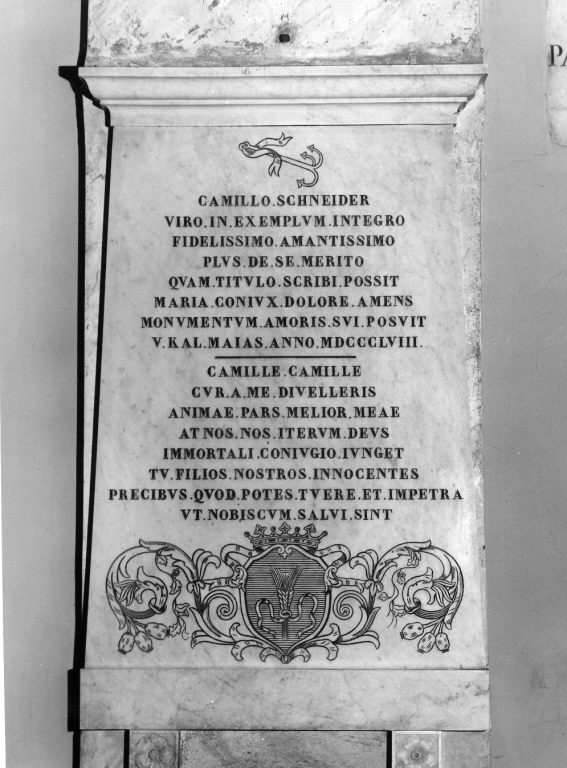 PA
CAMILLO.SCHNEIDER
VIRO.IN.EXEMPLVM.INTEGRO
FIDELISSIMO.AMANTISSIMO
PLVS.DE.SE.MERITO
QVAM.TITVLO.SCRIBI.POSSIT
MARIA.CONIVX.DOLORE.AMENS
MONVMENTVM.AMORIS.SVI.POSVIT
V.KAL.MAIAS.ANNO.MDCCCLVIII.
CAMILLE.CAMILLE
CVR.A.ME.DIVELLERIS
ANIMAE.PARS.MELIOR.MEAE
AT NOS.NOS.ITERVM.DEVS
IMMORTALI.CONIVGIO.IVNGET
TV.FILIOS.NOSTROS.INNOCENTES
PRECIBVS.QVOD.POTES.TVERE.ET.IMPETRA
VT.NOBISCVM.SALVI.SINT